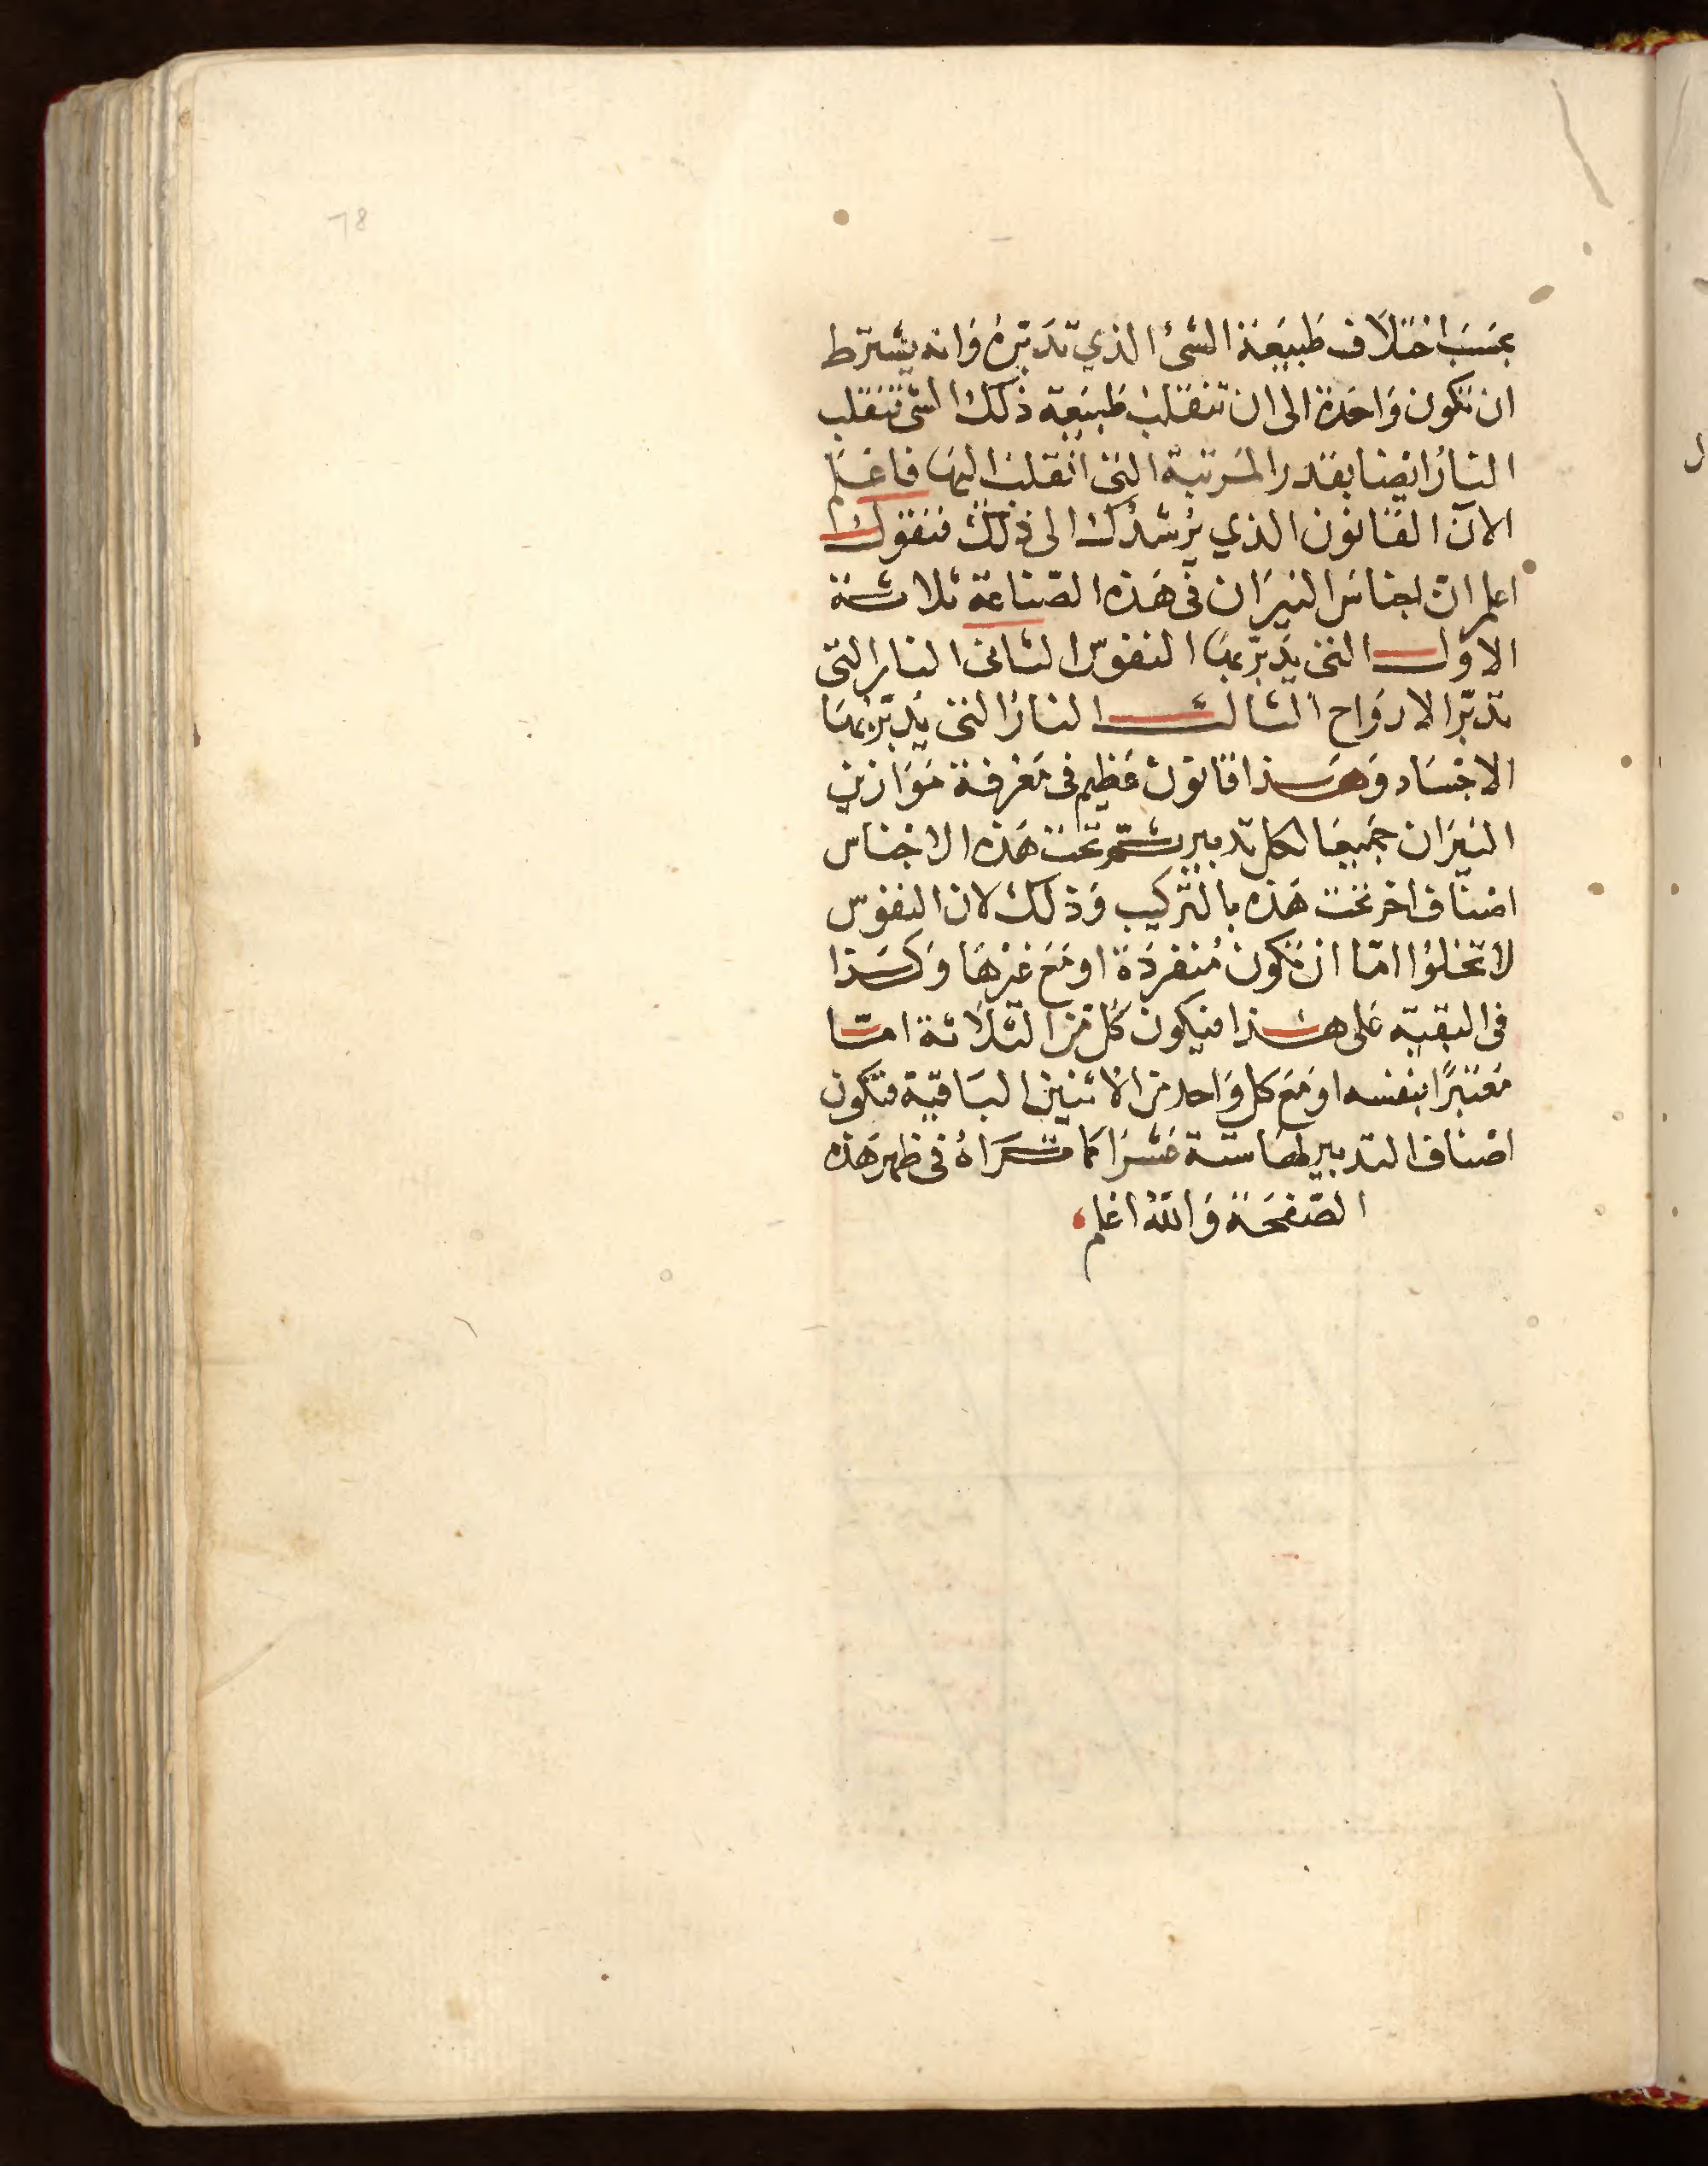 78
بحسب اختلاف طبيعة الشئ الذي تدبره وانه يشترط
ان تكون واحدة الى ان تنقلب طبيعة ذلك الشئ تنقلب
النار ايضا بقدر المرتبة التي انقلب اليها فاعلم
الآن القانون الذي يرشدك الى ذلك فنقول
اعلم ان اجناس النيران في هذه الصناعة ثلاثة
الاول التي يدبر بها النفوس الثاني النار التي
تدبر الارواح الثالث النار التي يدبر بها
الاجساد وهذا قانون عظيم في معرفة موازين
النيران جميعا لكل تدبير ثم تحت هذه الاجناس
اصناف اخر تحت هذه بالتركيب وذلك لان النفوس
لا تخلوا امّا ان تكون مُنفردة او مع غيرها وكذا
في البقيّة على هذا فيكون كل من الثلاثة امّا
معتبرًا بنفسه او مع كل واحد من الاثنين الباقية فتكون
اصناف التدبير لها ستة عشر كما تراهُ في ظهر هذه
الصّفحة والله اعلم